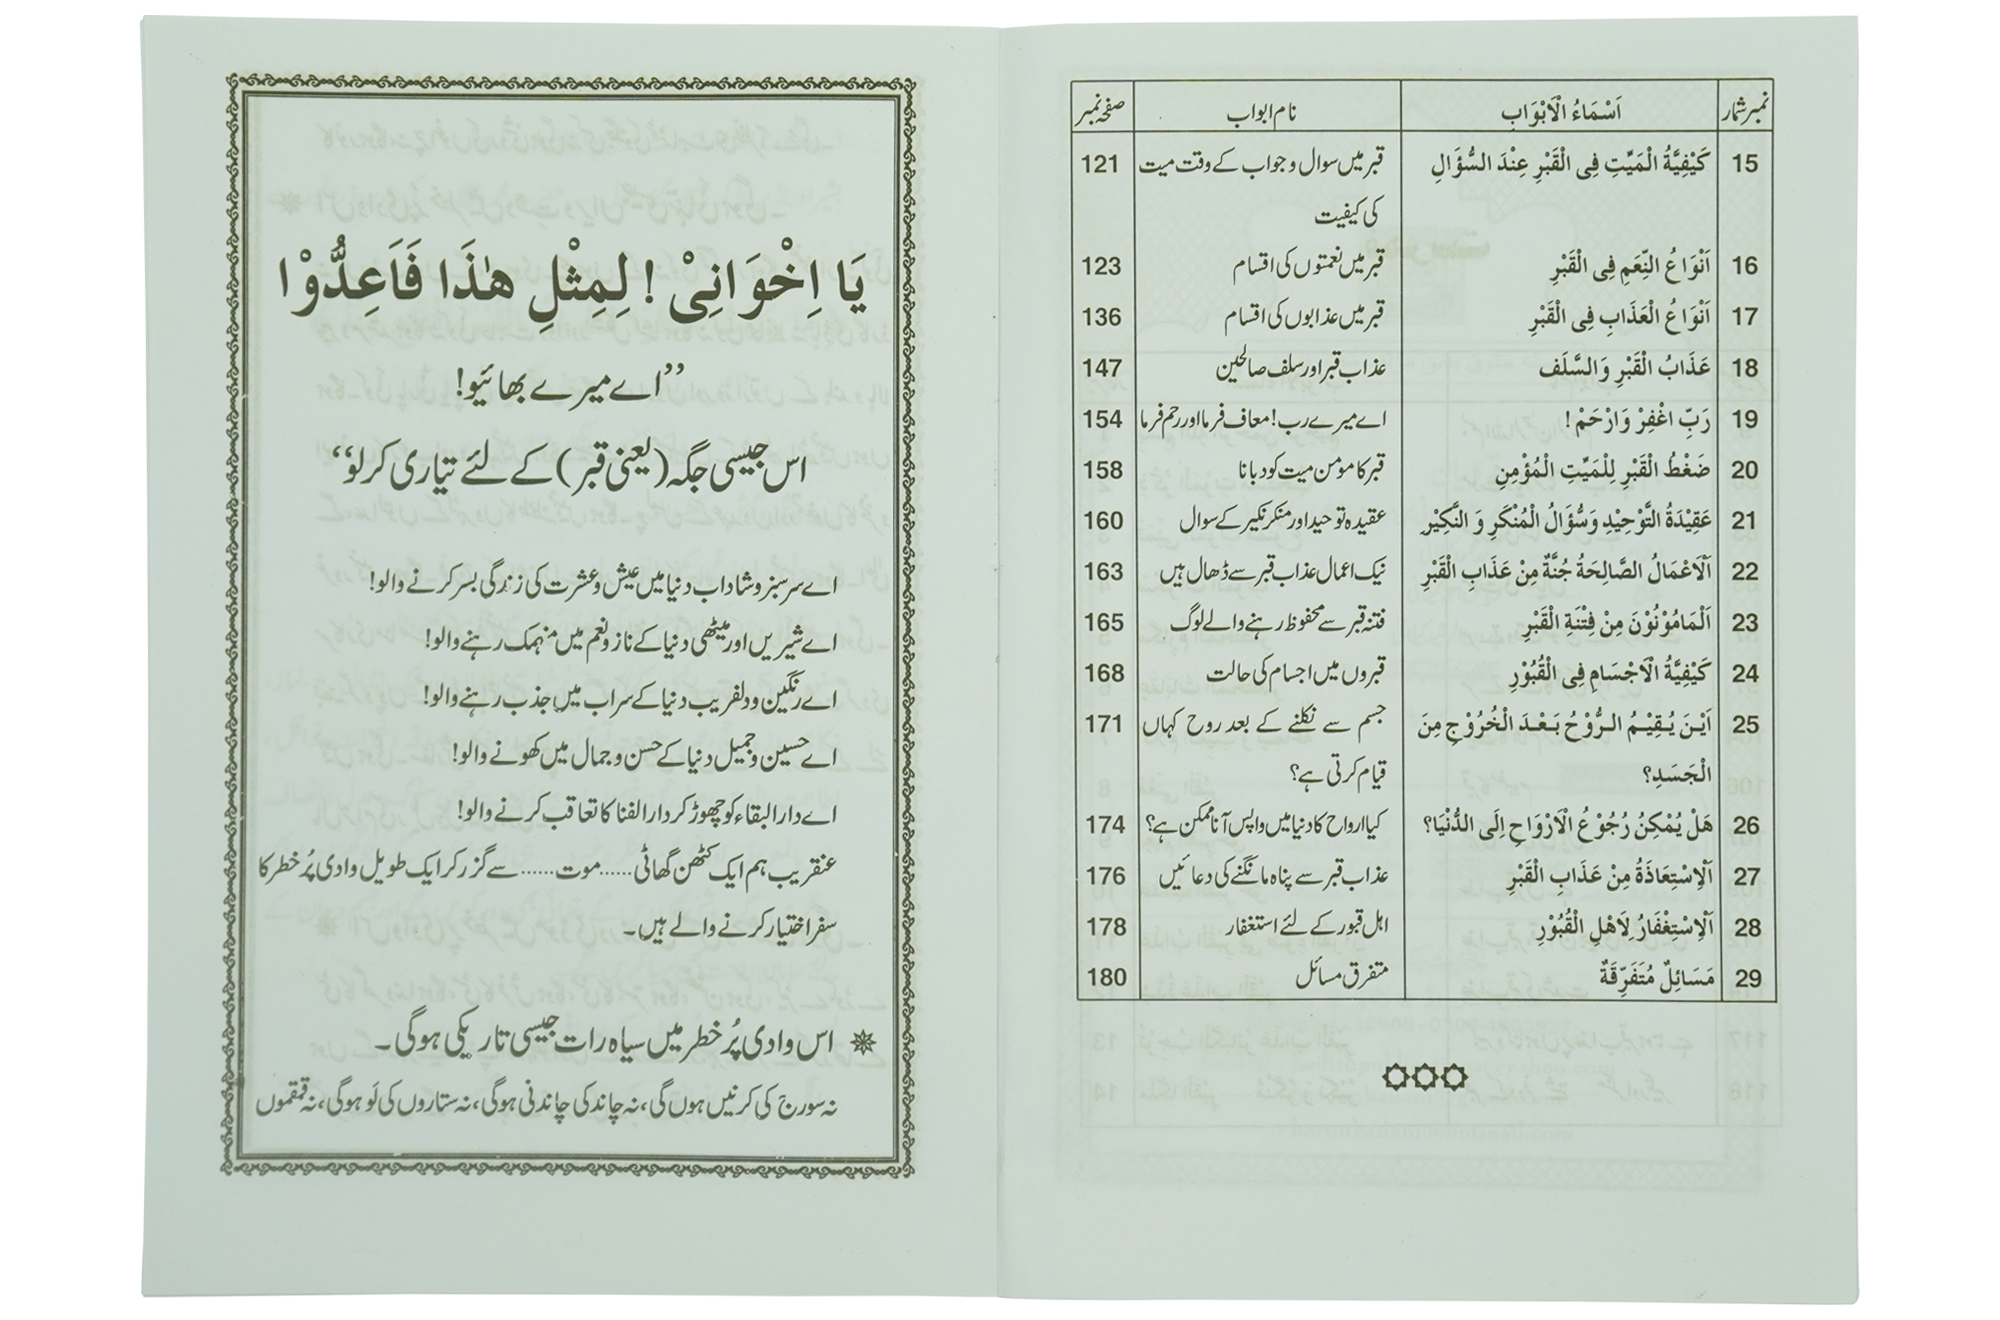 نمبر شمار اَسْمَاءُ الْاَبْوَابِ نام ابواب صفحہ نمبر
15 كَيْفِيَّةُ الْمَيِّتِ فِى الْقَبْرِ عِنْدَ السُّؤَالِ قبر میں سوال و جواب کے وقت میت 121
کی کیفیت
16 اَنْوَاعُ النِّعَمِ فِى الْقَبْرِ قبر میں نعمتوں کی اقسام 123
17 اَنْوَاعُ الْعَذَابِ فِى الْقَبْرِ قبر میں عذابوں کی اقسام 136
18 عَذَابُ الْقَبْرِ وَالسَّلَف عذاب قبر اور سلف صالحین 147
19 رَبِّ اغْفِرْ وَارْحَمْ! اے میرے رب! معاف فرما اور رحم فرما 154
20 ضَغْطُ الْقَبْرِ لِلْمَيِّتِ الْمُؤْمِنِ قبر کا مومن میت کو دبانا 158
21 عَقِيْدَةُ التَّوْحِيْدِ وَسُؤَالُ الْمُنْكَرِ وَ النَّكِيْرِ عقیدہ توحید اور منکر نکیر کے سوال 160
22 اَلْاَعْمَالُ الصَّالِحَةُ جُنَّةٌ مِنْ عَذَابِ الْقَبْرِ نیک اعمال عذاب قبر سے ڈھال ہیں 163
23 اَلْمَامُوْنُوْنَ مِنْ فِتْنَةِ الْقَبْرِ فتنہ قبر سے محفوظ رہنے والے لوگ 165
24 كَيْفِيَّةُ الْاَجْسَامِ فِى الْقُبُوْرِ قبروں میں اجسام کی حالت 168
25 اَيْنَ يُقِيْمُ الرُّوْحُ بَعْدَ الْخُرُوْجِ مِنَ جسم سے نکلنے کے بعد روح کہاں 171
الْجَسَدِ؟ قیام کرتی ہے؟
26 هَلْ يُمْكِنُ رُجُوْعُ الْاَرْوَاحِ اِلَى الدُّنْيَا؟ کیا ارواح کا دنیا میں واپس آنا ممکن ہے؟ 174
27 اَلْاِسْتِعَاذَةُ مِنْ عَذَابِ الْقَبْرِ عذاب قبر سے پناہ مانگنے کی دعائیں 176
28 اَلْاِسْتِغْفَارُ لِاَهْلِ الْقُبُوْرِ اہل قبور کے لئے استغفار 178
29 مَسَائِلٌ مُتَفَرِّقَةٌ متفرق مسائل 180
يَا اِخْوَانِىْ! لِمِثْلِ هٰذَا فَاَعِدُّوْا
’’اے میرے بھائیو!
اس جیسی جگہ (یعنی قبر) کے لئے تیاری کر لو‘‘
اے سرسبز و شاداب دنیا میں عیش و عشرت کی زندگی بسر کرنے والو!
اے شیریں اور میٹھی دنیا کے ناز و نعم میں منہمک رہنے والو!
اے رنگین و دلفریب دنیا کے سراب میں جذب رہنے والو!
اے حسین و جمیل دنیا کے حسن و جمال میں کھونے والو!
اے دار البقاء کو چھوڑ کر دار الفنا کا تعاقب کرنے والو!
عنقریب ہم ایک کٹھن گھاٹی......موت......سے گزر کر ایک طویل وادی پُر خطر کا
سفر اختیار کرنے والے ہیں۔
اس وادی پُر خطر میں سیاہ رات جیسی تاریکی ہوگی۔
نہ سورج کی کرنیں ہوں گی، نہ چاند کی چاندنی ہوگی، نہ ستاروں کی لَو ہوگی، نہ قمقموں